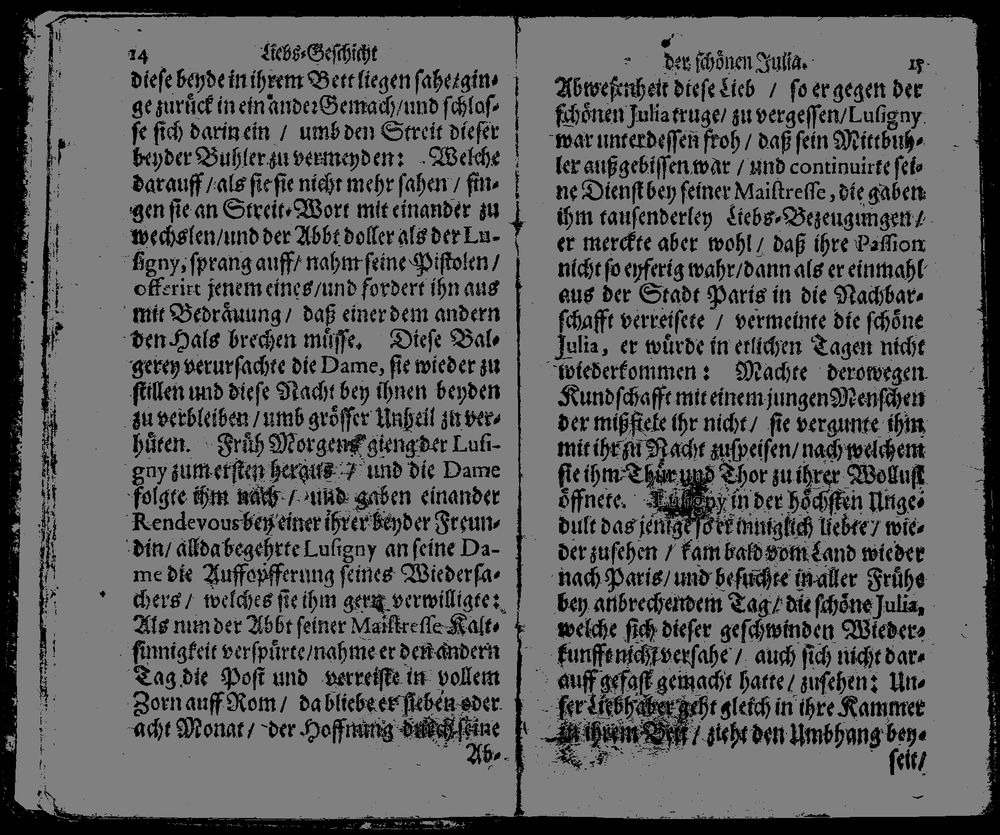 14 Liebs-Geschicht
diese beyde in ihrem Bett liegen sahe/gin-
ge zurück in ein ander Gemach/und schlos-
se sich darin ein / umb den Streit dieser
beyder Buhler zu vermeyden: Welche
darauff/als sie sie nicht mehr sahen / fin-
gen sie an Streit-Wort mit einander zu
wechslen/und der Abbt doller als der Lu-
signy, sprang auff/ nahm seine Pistolen /
offerirt jenem eines/und fordert ihn aus
mit Bedräuung / daß einer dem andern
den Hals brechen müsse. Diese Bal-
gerey verursachte die Dame, sie wieder zu
stillen und diese Nacht bey ihnen beyden
zu verbleiben / umb grösser Unheil zu ver-
hüten. Früh Morgens gieng der Lusi-
gny zum ersten heraus / und die Dame
folgte ihm nach / und gaben einander
Rendevous bey einer ihrer beyder Freun-
din/ allda begehrte Lusigny an seine Da-
me die Auffopfferung seines Wiedersa-
chers / welches sie ihm gern verwilligte:
Als nun der Abbt seiner Maistresse Kalt-
sinnigkeit verspürte/nahme er den andern
Tag die Post und verreiste in vollem
Zorn auff Rom / da bliebe er sieben oder
acht Monat / der Hoffnung durch seine
Ab-
der schönen Julia. 15
Abwesenheit diese Lieb / so er gegen der
schönen Julia truge/ zu vergessen/Lusigny
war unterdessen froh / daß sein Mittbuh-
ler außgebissen war / und continuirte sei-
ne Dienst bey seiner Maistresse, die gaben
ihm tausenderley Liebs-Bezeugungen /
er merckte aber wohl / daß ihre Passion
nicht so eyferig wahr/dann als er einmahl
aus der Stadt Paris in die Nachbar-
schafft verreisete / vermeinte die schöne
Julia, er würde in etlichen Tagen nicht
wiederkommen: Machte derowegen
Kundschafft mit einem jungen Menschen
der mißfiele ihr nicht / sie vergunte ihm
mit ihr zu Nacht zuspeisen / nach welchem
sie ihm Thür und Thor zu ihrer Wollust
öffnete. Lusigny in der höchsten Unge-
dult das jenige so er inniglich liebte / wie-
der zusehen / kam bald vom Land wieder
nach Paris/ und besuchte in aller Frühe
bey anbrechendem Tag/ die schöne Julia,
welche sich dieser geschwinden Wieder-
kunfft nicht versahe / auch sich nicht dar-
auff gefast gemacht hatte / zusehen: Un-
ser Liebhaber geht gleich in ihre Kammer
in ihrem Bett / zieht den Umbhang bey-
seit/